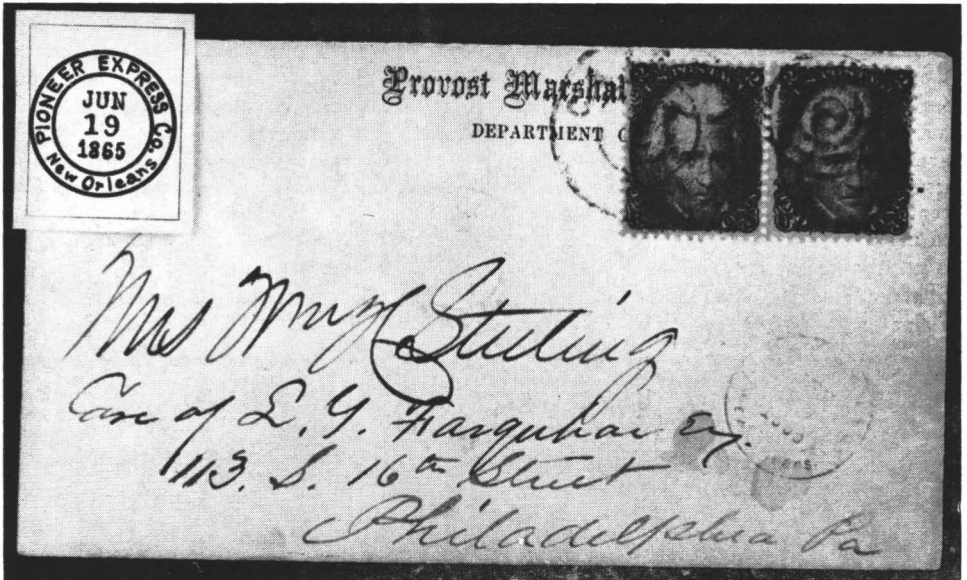 PIONEER EXPRESS Co.
JUN
19
1865
New Orleans.
Provost Marshal
DEPARTMENT
Mrs Wm Sterling
Care of L. G. Farquhar Esq.
113. S. 16th Street
Philadelphia Pa